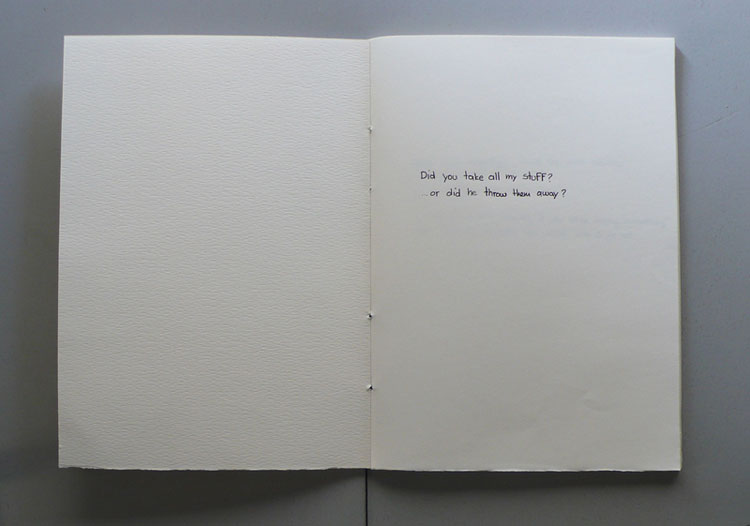 Did you take all my stuff?
...or did he throw them away?